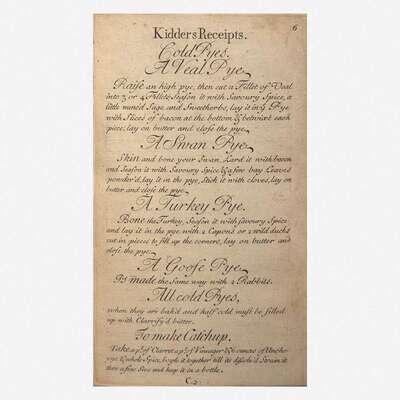 6
Kidders Receipts.
Cold Pyes.
A Veal Pye.
Raise an high pye, then cut a Fillet of Veal
into 3 or 4 Fillets Season it with Savoury Spice, a
little minc'd Sage and Sweetherbs, lay it in yͤ Pye
with Slices of bacon at the bottom & betwixt each
piece, lay on butter and close the pye.
A Swan Pye.
Skin and bone your Swan, Lard it with bacon
and Season it with Savoury Spice & a few bay Leaves
powder'd, lay it in the pye, Stick it with cloves, lay on
butter and close the pye.
A Turkey Pye.
Bone the Turkey, Season it with savoury Spice
and lay it in the pye with 2 Capons or 2 wild ducks
cut in pieces to fill up the corners, lay on butter and
close the pye.
A Goose Pye.
Is made the same way with 2 Rabbits.
All cold Pyes,
when they are bak'd and half cold must be filled
up with Clarrify'd butter.
To make Catchup.
Take a pᵗ. of Claret a pᵗ. of Vinnager & 6 ounces of Ancho-
vys & whole Spice, boyle it together till its dissolv'd Strain it
then a fine Sive and keep it in a bottle.
C.2.